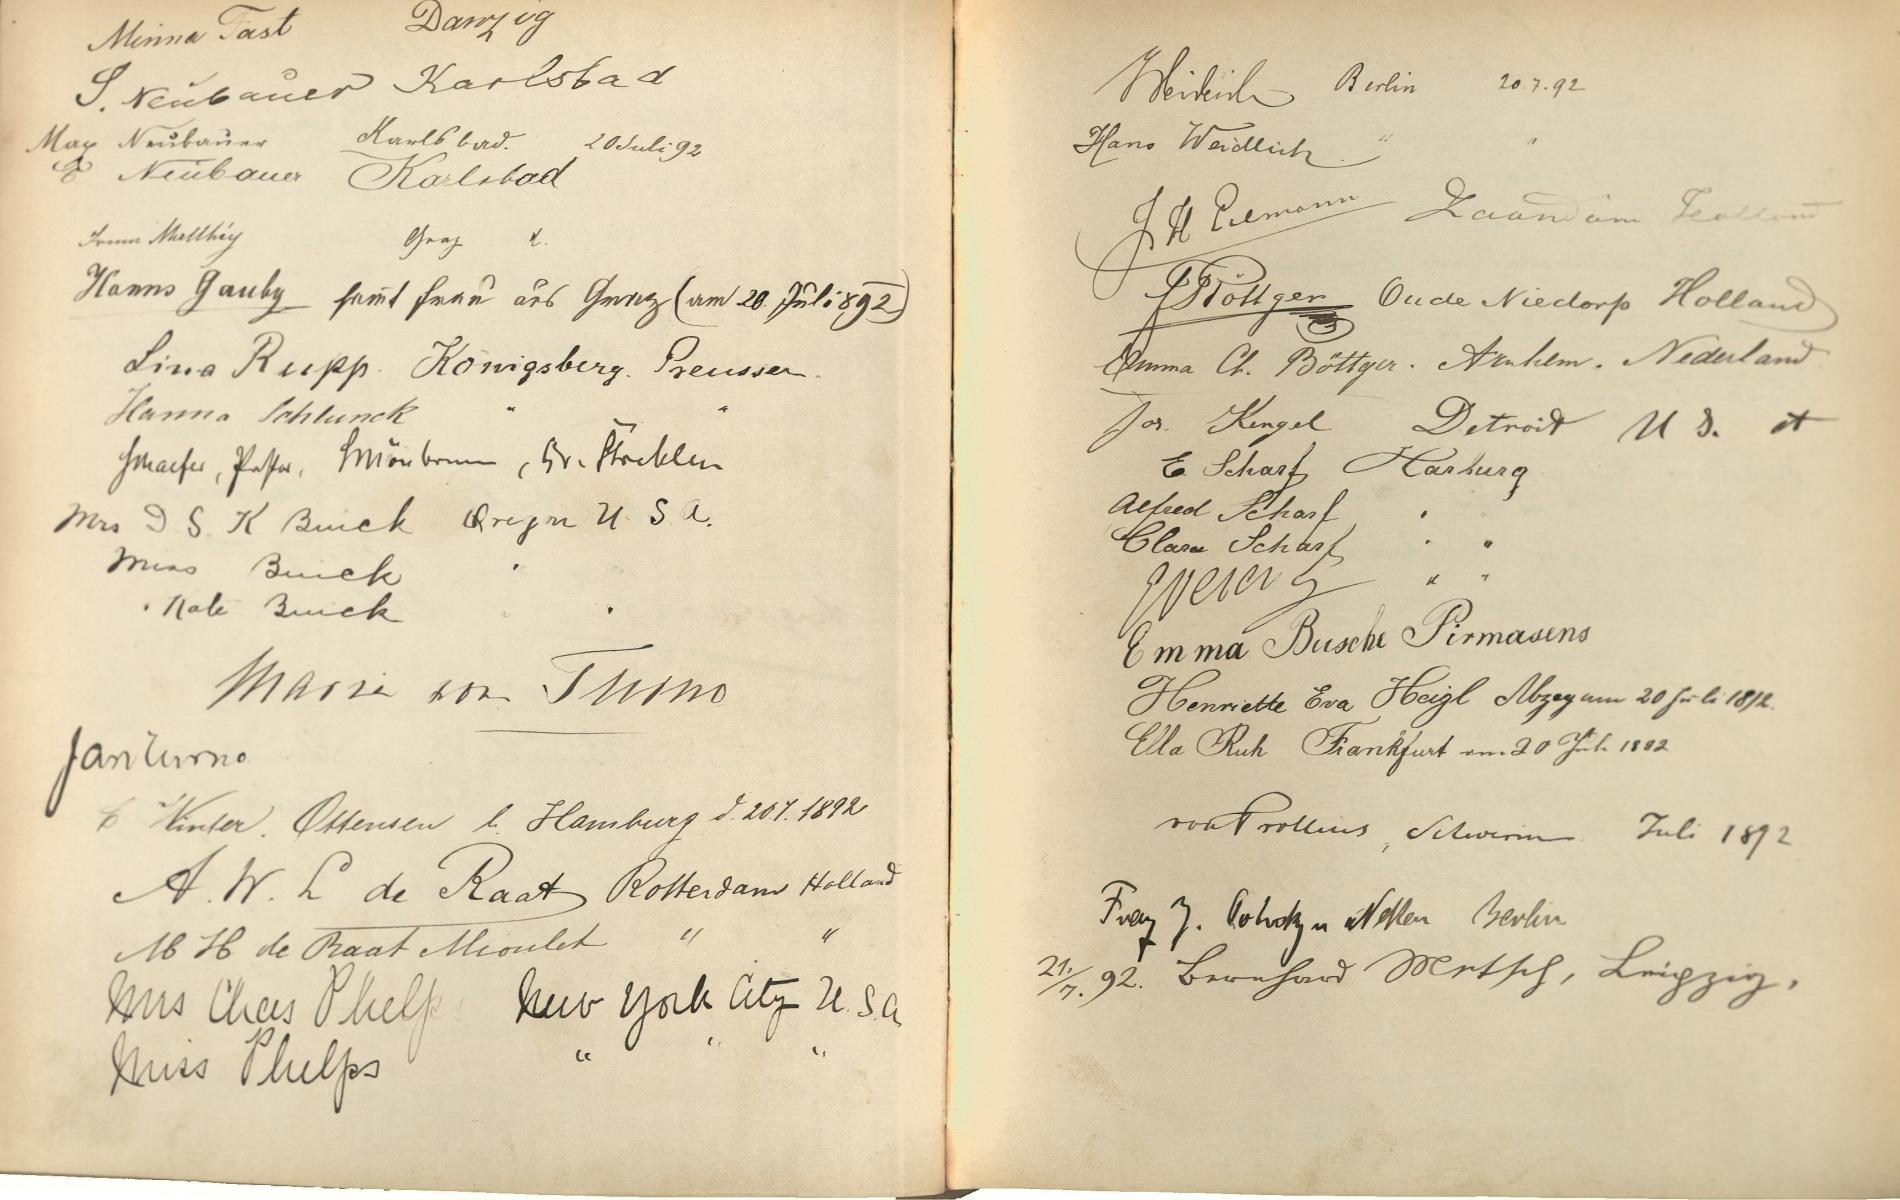 Minna Tast Danzig
S. Neubauer Karlsbad
Max Neubauer Karlsbad. 20 Juli 92
E Neubauer Karlsbad
Graz
Hanns Gauby samt Frau aus Graz (am 20. Juli 892)
Lina Rupp. Königsberg. Preussen.
Hanna Schlunck " "
Schaefer, Pastor,
Mrs D S K Buick U. S. A.
Miss Buick "
" Kate Buick " "
Maria von Turno
Jan Turno
E Winter. Ottensen b. Hamburg d. 20.7.1892
A. W. L de Raat Rotterdam Holland
M H de Raat Mioulet " "
Mrs Chas Phelps New York City U. S. A
Miss Phelps " " "
Berlin 20.7.92
Hans Weidlich " "
J H Zaandam
Böttger Oude Niedorp Holland
Emma Ch. Böttger. Arnhem. Nederland
Jos. Kengel Detroit U S. A
E Scharf Harburg
Alfred Scharf "
Clara Scharf " "
" "
Emma Busche Pirmasens
Henriette Eva Heigl am 20 Juli 1892.
Ella Ruh Frankfurt am 20 Juli 1892
von Prollius, Schwerin Juli 1892
Berlin
21./7. 92. Bernhard Leipzig.